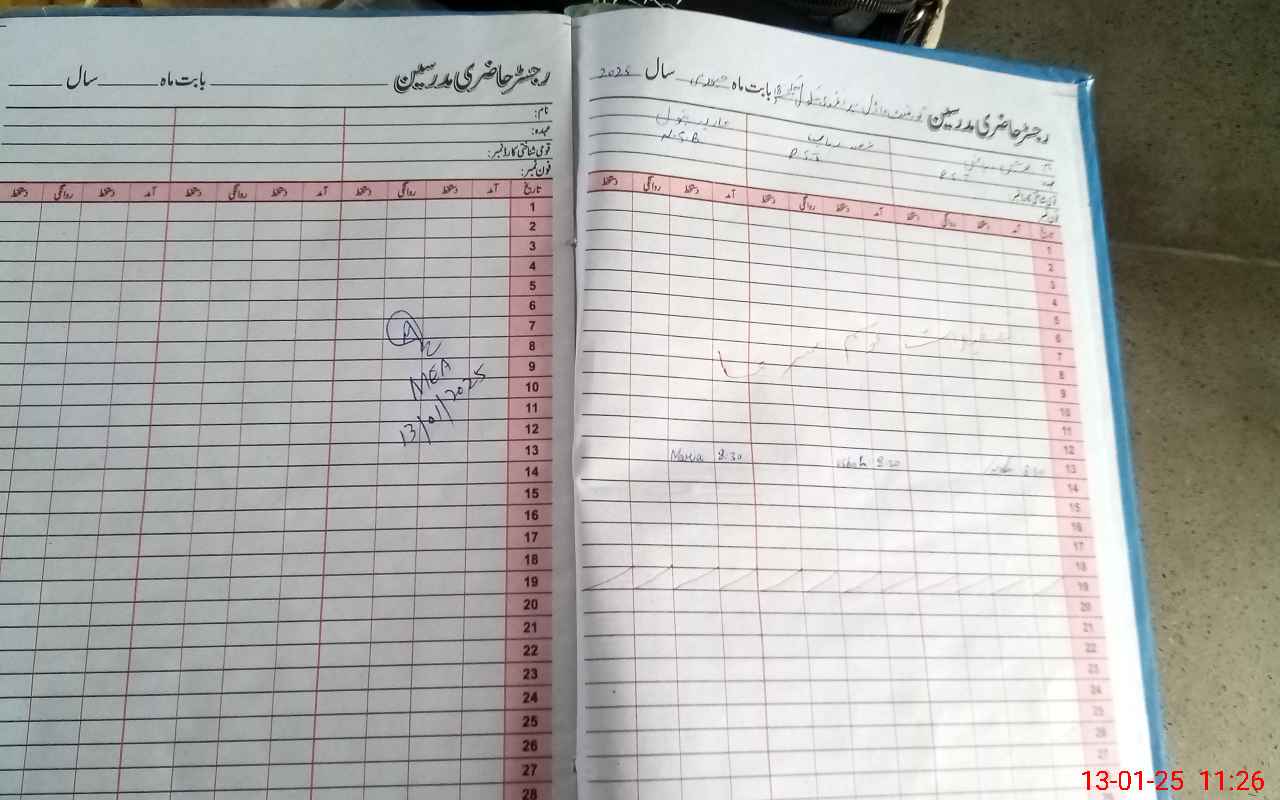 رجسٹر حاضری مدرسین بابت ماہ جنوری سال 2025
P.S.T P.S.T N.S.B
قومی شناختی کارڈ نمبر
فون نمبر
تاریخ آمد دستخط روانگی دستخط آمد دستخط روانگی دستخط آمد دستخط روانگی دستخط
1
2
3
4
5
6
تعطیلات موسم سرما
7
8
9
10
11
12
13 8:30 8:30 8:30 Maria
14
15
16
17
18
19
20
21
22
23
24
25
26
27
رجسٹر حاضری مدرسین بابت ماہ سال
نام:
عہدہ:
قومی شناختی کارڈ نمبر:
فون نمبر:
تاریخ آمد دستخط روانگی دستخط آمد دستخط روانگی دستخط آمد دستخط روانگی دستخط
1
2
3
4
5
6
7
8
9
10
11
12
13
14
15
16
17
18
19
20
21
22
23
24
25
26
27
28
MEA
13/01/2025
13-01-25 11:26